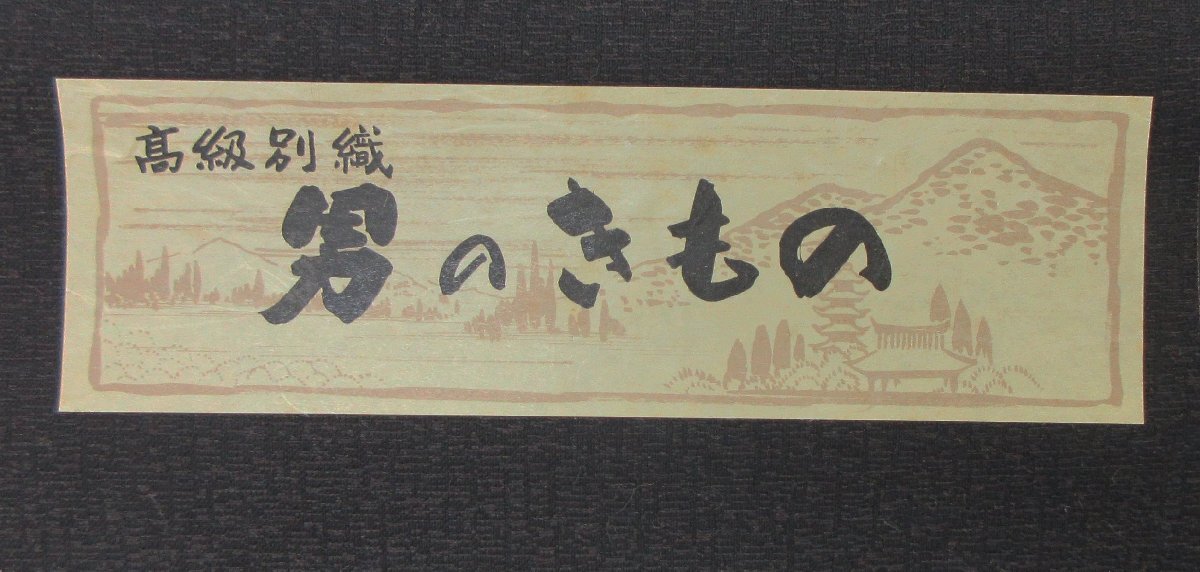 髙級別織
男のきもの